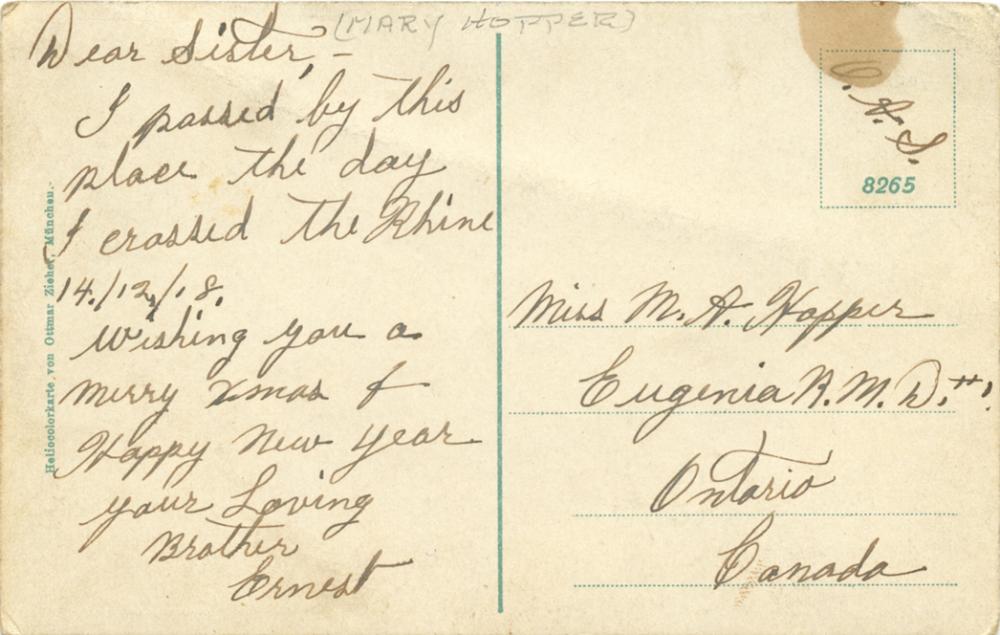 (MARY HOPPER)
Dear Sister, -
I passed by this
place the day
I crossed the Rhine
14./12/18.
Wishing you a
Merry Xmas &
Happy New Year
your Loving
Brother
Ernest
Heliocolorkarte von Ottmar Zieher, München.
8265
Miss M. A. Hopper
Eugenia R. M. D.
Ontario
Canada